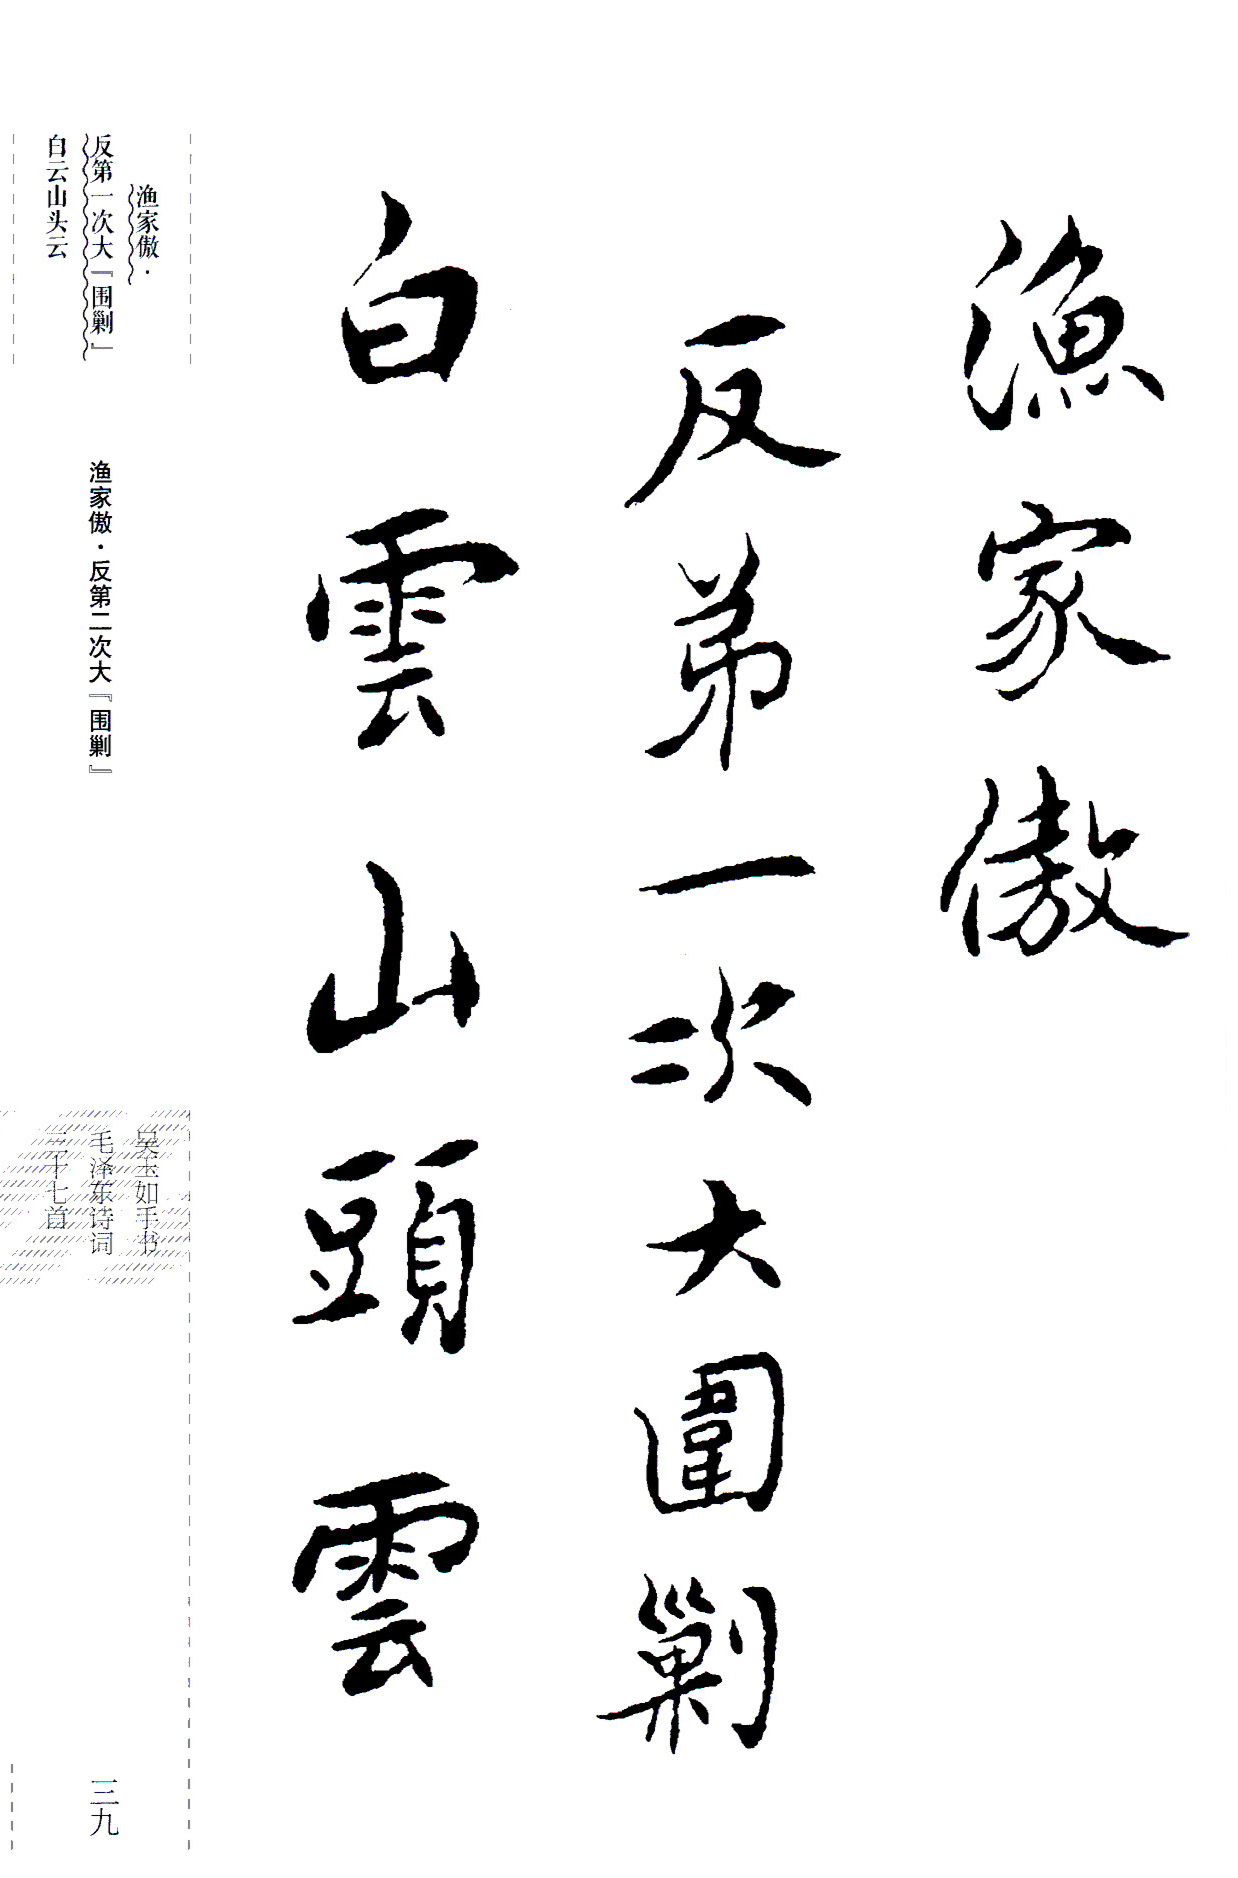 漁家傲
反第一次大圍剿
白雲山頭雲
渔家傲·
反第一次大『围剿』
白云山头云
渔家傲·反第二次大『围剿』
吴玉如手书
毛泽东诗词
三十七首
三九